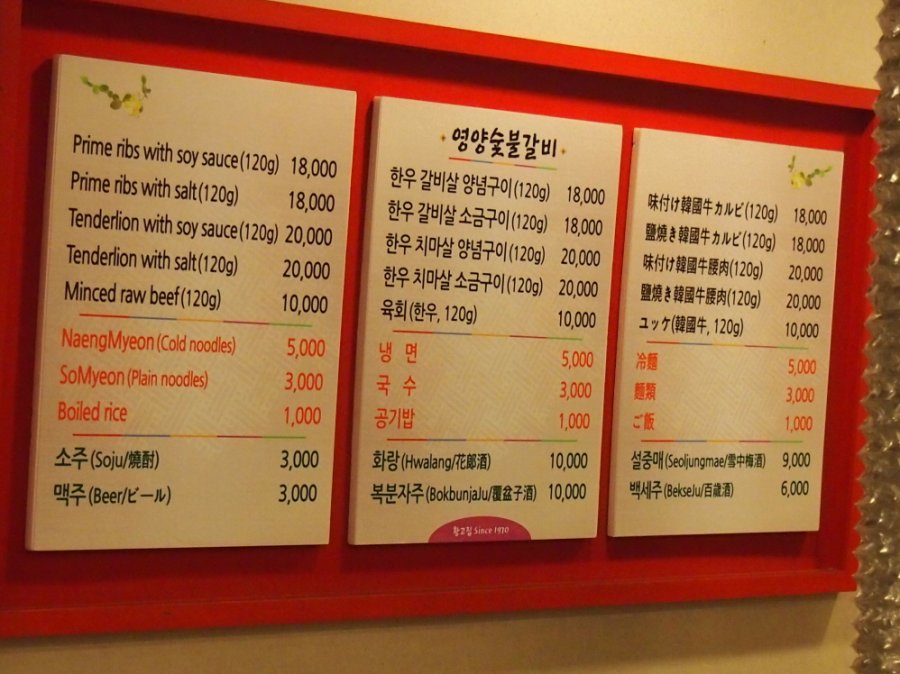 Prime ribs with soy sauce (120g) 18,000
Prime ribs with salt (120g) 18,000
Tenderlion with soy sauce (120g) 20,000
Tenderlion with salt (120g) 20,000
Minced raw beef (120g) 10,000
NaengMyeon (Cold noodles) 5,000
SoMyeon (Plain noodles) 3,000
Boiled rice 1,000
소주 (Soju/燒酎) 3,000
맥주 (Beer/ビール) 3,000
영양숯불갈비
한우 갈비살 양념구이 (120g) 18,000
한우 갈비살 소금구이 (120g) 18,000
한우 치마살 양념구이 (120g) 20,000
한우 치마살 소금구이 (120g) 20,000
육회 (한우, 120g) 10,000
냉 면 5,000
국 수 3,000
공기밥 1,000
화랑 (Hwalang/花郞酒) 10,000
복분자주 (BokbunjaJu/覆盆子酒) 10,000
Since 1970
味付け韓國牛カルビ (120g) 18,000
鹽燒き韓國牛カルビ (120g) 18,000
味付け韓國牛腰肉 (120g) 20,000
鹽燒き韓國牛腰肉 (120g) 20,000
ユッケ (韓國牛, 120g) 10,000
冷麵 5,000
麵類 3,000
ご飯 1,000
설중매 (Seoljungmae/雪中梅酒) 9,000
백세주 (BekseJu/百歲酒) 6,000